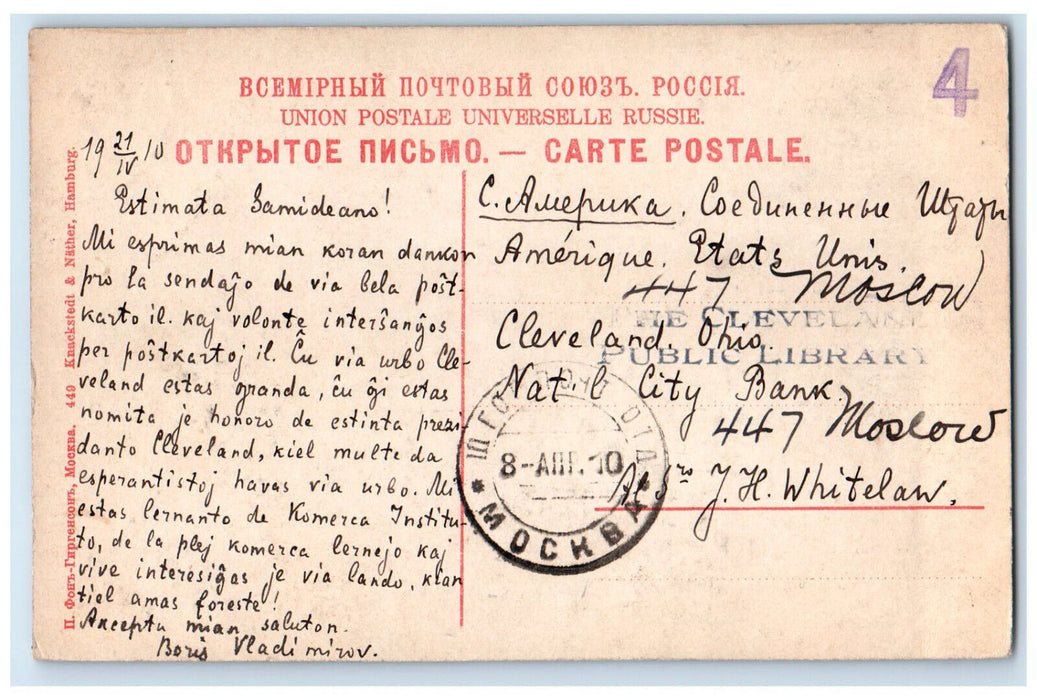 4
ВСЕМІРНЫЙ ПОЧТОВЫЙ СОЮЗЪ. РОССІЯ.
UNION POSTALE UNIVERSELLE RUSSIE.
ОТКРЫТОЕ ПИСЬМО. — CARTE POSTALE.
19 21/IV 10
Estimata Samideano!
Mi esprimas mian koran dankon
pro la sendaĵo de via bela poŝt-
karto il. kaj volonte interŝanĝos
per poŝtkartoj il. Ĉu via urbo Cle-
veland estas granda, ĉu ĝi estas
nomita je honoro de estinta prezi-
danto Cleveland, kiel multe da
esperantistoj havas via urbo. Mi
estas lernanto de Komerca Institu-
to, de la plej komerca lernejo kaj
vive interesiĝas je via lando, kian
tiel amas foreste!
Akceptu mian saluton.
Boris Vladimirov.
С. Америка. Соединенные Штаты
Amérique. Etats Unis.
447 Moscow
THE CLEVELAND
Cleveland. Ohio.
PUBLIC LIBRARY
Nat'l City Bank.
447 Moscow
J. H. Whitelaw.
8-АПР.10
МОСКВА
П. Фонъ-Гиргенсонъ, Москва. 449 Knackstedt & Näther, Hamburg.